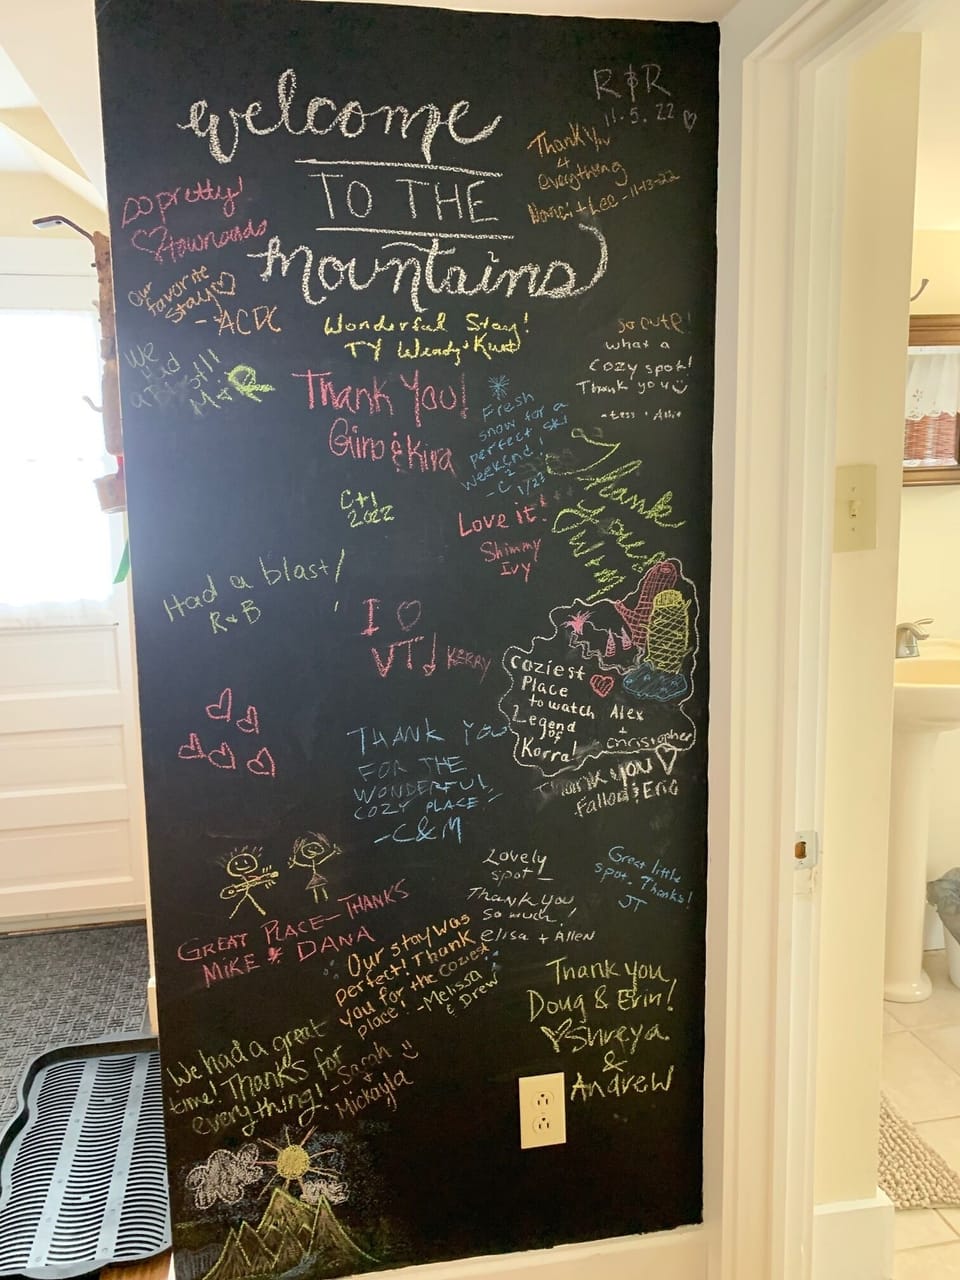 welcome
TO THE
mountains
R & R
11.5.22
Thank You
4
everything
+ Lee - 11-13-22
So pretty!
Our
favorite
stay
- ACDC
Wonderful Stay!
TY Wendy + Kurt
So cute!
what a
cozy spot!
Thank you
- Tess +
We
had
M + R
Thank You!
Gino & Kira
Fresh
snow for a
perfect ski
weekend!
- C² 1/27
Thank
You
C+I
2022
Love it!
Shimmy
Ivy
Had a blast!
R & B
I ♡
VT! KERRY
Coziest
Place
to watch
Legend
of
Korra!
Alex
+
Christopher
Thank you
Fallon & Eric
THANK YOU
FOR THE
WONDERFUL,
COZY PLACE -
- C&M
Lovely
spot -
Thank you
so much!
elisa + Allen
Great little
spot. Thanks!
JT
GREAT PLACE - THANKS
MIKE & DANA
Our stay was
perfect! Thank
you for the coziest
place!
- Melissa
& Drew
Thank you,
Doug & Erin!
♡ Shreya
&
Andrew
We had a great
time! Thanks for
everything!
- Sarah
+
Mickayla